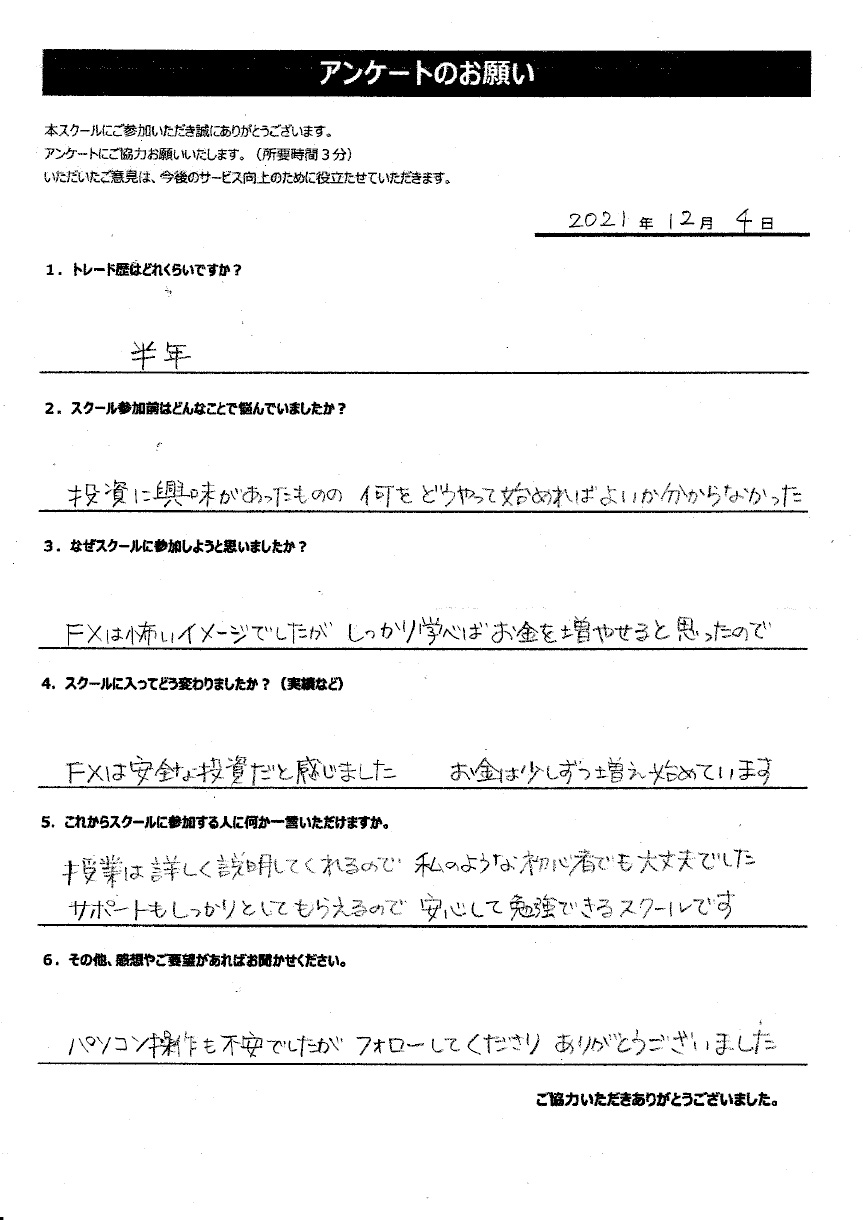 アンケートのお願い
本スクールにご参加いただき誠にありがとうございます。
アンケートにご協力お願いいたします。（所要時間３分）
いただいたご意見は、今後のサービス向上のために役立たせていただきます。
2021年 12月 4日
１．トレード歴はどれくらいですか？
半年
２．スクール参加前はどんなことで悩んでいましたか？
投資に興味があったものの 何をどうやって始めればよいか分からなかった
３．なぜスクールに参加しようと思いましたか？
FXは怖いイメージでしたが しっかり学べば お金を増やせると思ったので
４．スクールに入ってどう変わりましたか？（実績など）
FXは安全な投資だと感じました お金は少しずつ増え始めています
５．これからスクールに参加する人に何か一言いただけますか。
授業は詳しく説明してくれるので 私のような初心者でも大丈夫でした
サポートもしっかりとしてもらえるので 安心して勉強できるスクールです
６．その他、感想やご要望があればお聞かせください。
パソコン操作も不安でしたが フォローしてくださり ありがとうございました
ご協力いただきありがとうございました。